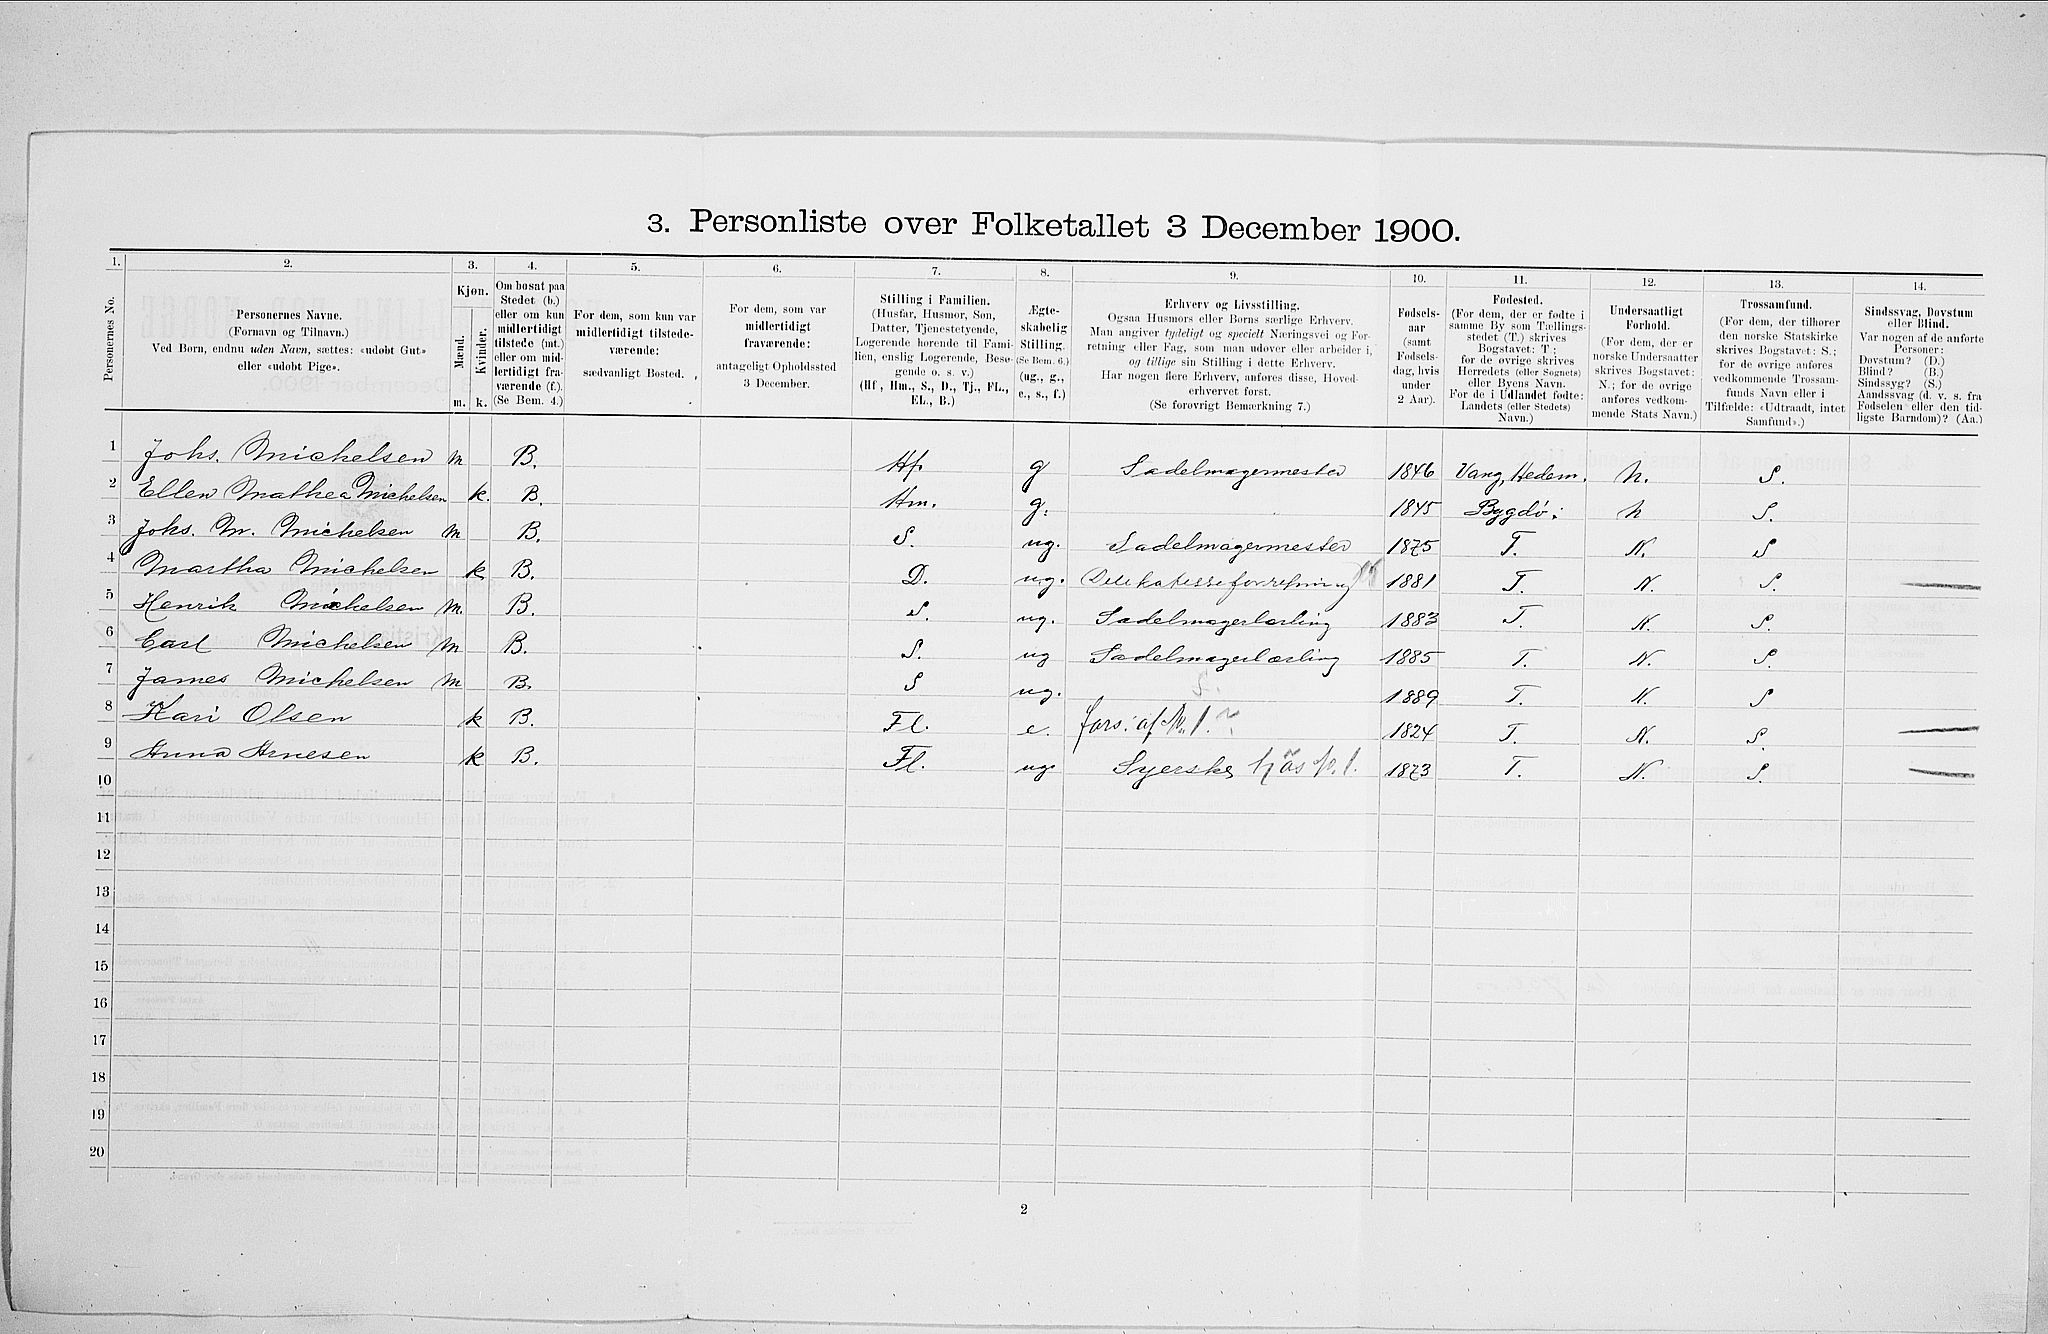 3. Personliste over Folketallet 3 December 1900.
1. 2. 3. 4. 5. 6. 7. 8. 9. 10. 11. 12. 13. 14.
Personernes No.
Personernes Navne.
(Fornavn og Tilnavn.)
Ved Børn, endnu uden Navn, sættes: «udøbt Gut»
eller «udøbt Pige».
Kjøn.
Mænd.
Kvinder.
m. k.
Om bosat paa
Stedet (b.)
eller om kun
midlertidigt
tilstede (mt.)
eller om mid-
lertidigt fra-
værende (f.).
(Se Bem. 4.)
For dem, som kun var
midlertidigt tilstede-
værende:
sædvanligt Bosted.
For dem, som var
midlertidigt
fraværende:
antageligt Opholdssted
3 December.
Stilling i Familien.
(Husfar, Husmor, Søn,
Datter, Tjenestetyende,
Logerende hørende til Fami-
lien, enslig Logerende, Besø-
gende o. s. v.)
(Hf, Hm., S., D., Tj., FL.,
EL., B.)
Ægte-
skabelig
Stilling.
(Se Bem. 6.)
(ug., g.,
e., s., f.)
Erhverv og Livsstilling.
Ogsaa Husmors eller Børns særlige Erhverv.
Man angiver tydeligt og specielt Næringsvei og For-
retning eller Fag, som man udøver eller arbeider i,
og tillige sin Stilling i dette Erhverv.
Har nogen flere Erhverv, anføres disse, Hoved-
erhvervet først.
(Se forøvrigt Bemærkning 7.)
Fødsels-
aar
(samt
Fødsels-
dag, hvis
under
2 Aar).
Fødested.
(For dem, der er fødte i
samme By som Tællings-
stedet (T.) skrives
Bogstavet: T.;
for de øvrige skrives
Herredets (eller Sognets)
eller Byens Navn.
For de i Udlandet fødte:
Landets (eller Stedets)
Navn.)
Undersaatligt
Forhold.
(For dem, der er
norske Undersaatter
skrives Bogstavet:
N.; for de øvrige
anføres vedkom-
mende Stats Navn.)
Trossamfund.
(For dem, der tilhører
den norske Statskirke
skrives Bogstavet: S.;
for de øvrige anføres
vedkommende Trossam-
funds Navn eller i
Tilfælde: «Udtraadt, intet
Samfund».)
Sindssvag, Døvstum
eller Blind.
Var nogen af de anførte
Personer:
Døvstum? (D.)
Blind? (B.)
Sindssyg? (S.)
Aandssvag (d. v. s. fra
Fødselen eller den tid-
ligste Barndom)? (Aa.)
1 Johs. Michelsen m B. Hf g Sadelmagermester 1846 Vang, Hedem. N. S.
2 Ellen Mathea Michelsen k. B. Hm. g. 1845 Bygdø. N S.
3 Johs. M. Michelsen m B. S. ug. Sadelmagermester 1875 T. N. S
4 Martha Michelsen k B. D. ug. Delikatesseforretning 1881 T. N. S.
5 Henrik Michelsen m. B. S. ug. Sadelmagerlærling 1883 T. N. S.
6 Carl Michelsen m B. S. ug Sadelmagerlærling 1885 T. N. S.
7 James Michelsen m B. S ug. S. 1889 T. N. S
8 Kari Olsen k B. Fl. e. fors. af No. 1. 1824 T. N. S.
9 Anna Arnesen k B. Fl. ug. Syerske hos No. 1. 1873 T. N. S.
10
11
12
13
14
15
16
17
18
19
20
2